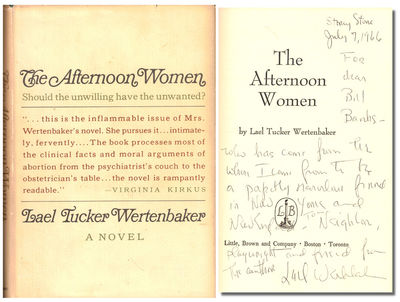 The Afternoon Women
Should the unwilling have the unwanted?
"... this is the inflammable issue of Mrs.
Wertenbaker's novel. She pursues it...intimate-
ly, fervently....The book processes most of
the clinical facts and moral arguments of
abortion from the psychiatrist's couch to the
obstetrician's table...the novel is rampantly
readable." —VIRGINIA KIRKUS
Lael Tucker Wertenbaker
A NOVEL
July 7, 1966
For
dear
Bill
The
Afternoon
Women
by Lael Tucker Wertenbaker
who has come from the
when I came from to be
a friend
in New York and
LB
to Neighbor,
Little, Brown and Company · Boston · Toronto
playwright and friend from
The author